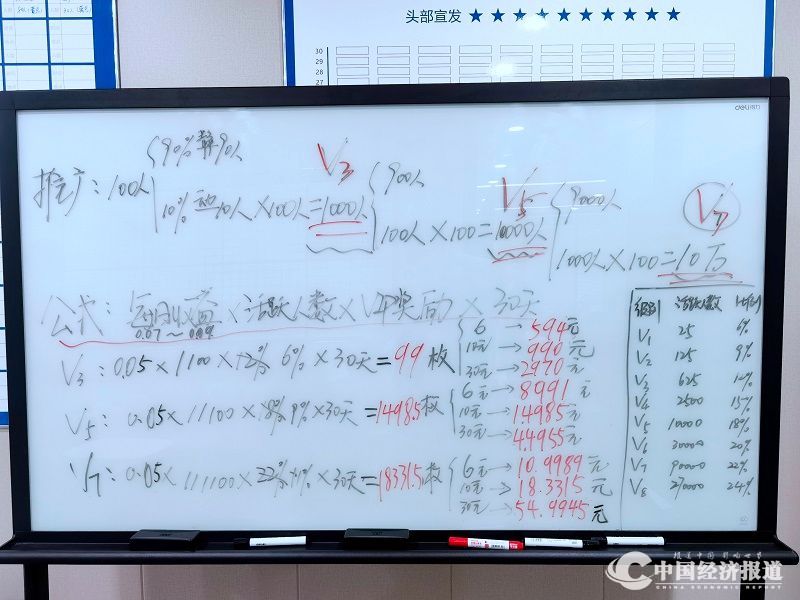 头部宣发 ★★★★★★★★★★
30
29
28
deli 得力
90% 静 90人
推广：100人
10% 动 10人×100人=1000人
V3
900人
100人×100=10000人
V5
9000人
1000人×100=10万
V7
公式：每日收益×活跃人数×V 奖励×30天
0.07～
V3：0.05×1100× 6%×30天=99枚
6→594元
10元→990元
30元→2970元
V5：0.05×11100× 9%×30天=1498.5枚
6元→8991元
10元→14985元
30元→44955元
V7：0.05×111100×22% ×30天=18331.5枚
6元→10.9989元
10元→18.3315元
30元→54.9945元
级别 活跃人数 比例
V1 25 6%
V2 125 9%
V3 625 12%
V4 2500 15%
V5 10000 18%
V6 30000 20%
V7 90000 22%
V8 270000 24%
报道中国 影响世界
中国经济报道
CHINA ECONOMIC REPORT